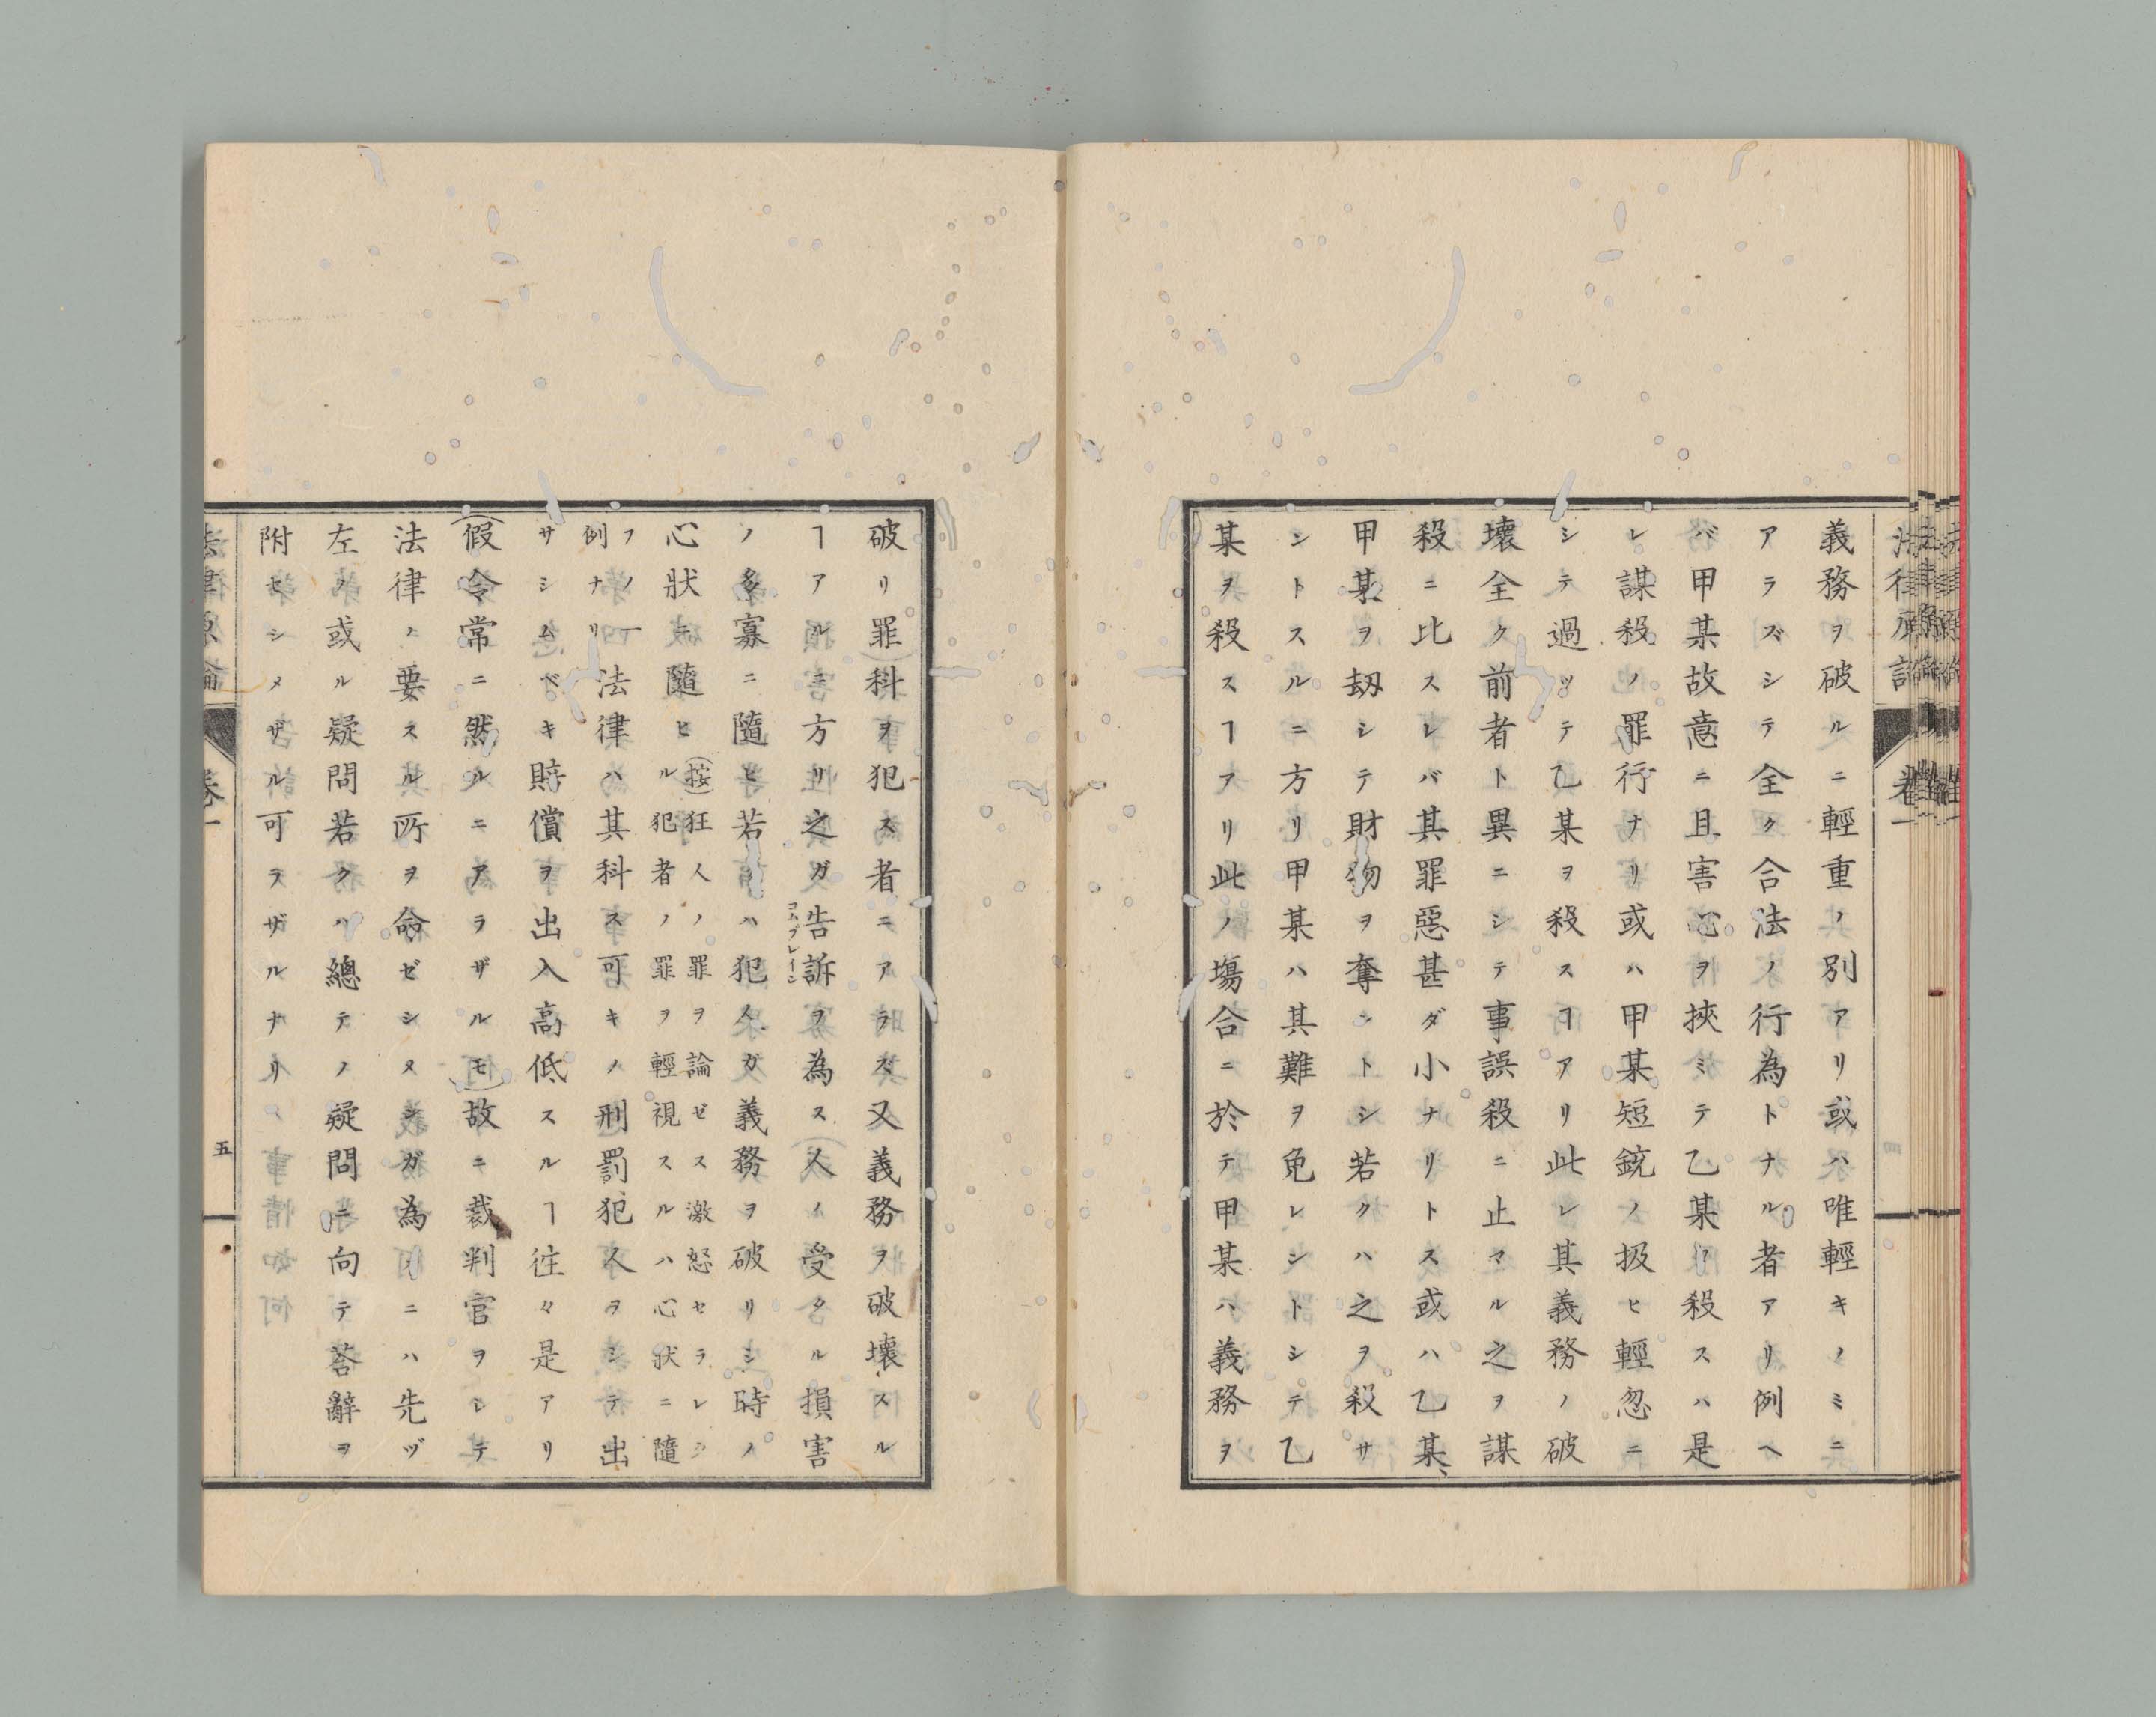 義務ヲ破ルニ輕重ノ別アリ或ハ唯輕キノミニ
アラズシテ全ク合法ノ行為トナル者アリ例ヘ
バ甲某故意ニ且害心ヲ挾ミテ乙某ヲ殺スハ是
レ謀殺ノ罪行ナリ或ハ甲某短銃ノ扱ヒ輕忽ニ
シテ過ツテ乙某ヲ殺スヿアリ此レ其義務ノ破
壞全ク前者ト異ニシテ事誤殺ニ止マル之ヲ謀
殺ニ比スレバ其罪惡甚ダ小ナリトス或ハ乙某、
甲某ヲ劫シテ財物ヲ奪ントシ若クハ之ヲ殺サ
ントスルニ方リ甲某ハ其難ヲ免レントシテ乙
某ヲ殺スヿアリ此ノ塲合ニ於テ甲某ハ義務ヲ
破リ罪科ヲ犯ス者ニアラズ又義務ヲ破壞スル
ヿアルニ方リ之ガ告訴ヲ為ス人ノ受タル損害
コムプレイーン
ノ多寡ニ隨ヒ若シハ犯人ガ義務ヲ破リシ時ノ
心狀ニ隨ヒ(按)狂人ノ罪ヲ論ゼス激怒セラレシ
ル犯者ノ罪ヲ輕視スルハ心狀ニ隨
フノ一
例ナリ
法律ハ其科ス可キノ刑罰、犯人ヲシテ出
サシムベキ賠償ヲ出入高低スルヿ徃々是アリ
(假令常ニ然ルニアラザルモ)故ニ裁判官ヲシテ
法律ノ要スル所ヲ命ゼシメンガ為ニハ先ヅ
左ノ或ル疑問若クハ總テノ疑問ニ向テ荅辭ヲ
附セシメザル可ラザルナリ
法律原論
卷一
五